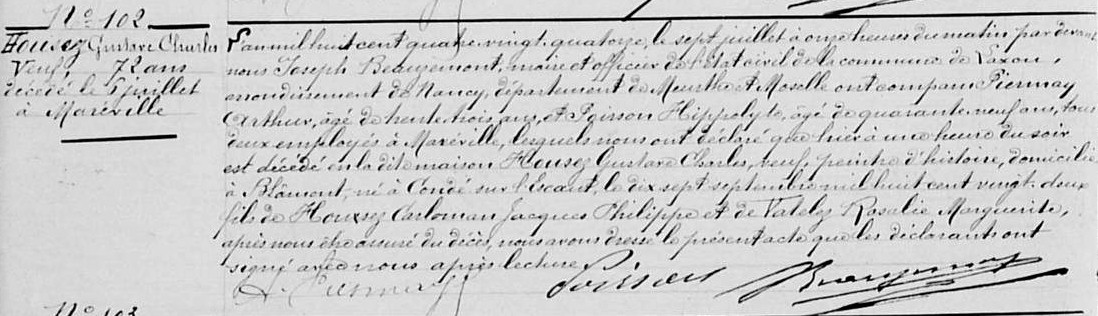 N° 102
Housez Gustave Charles
Veuf, 72 ans
décédé le 6 juillet
à Maréville
L'an mil huit cent quatre-vingt-quatorze, le sept juillet à onze heures du matin par devant
nous Joseph Beaujemont, maire et officier de l'état civil de la commune de Laxou,
arrondissement de Nancy, département de Meurthe et Moselle ont comparu Piernay
Arthur, âgé de trente trois ans, et Poirson Hippolyte, âgé de quarante-neuf ans, tous
deux employés à Maréville, lesquels nous ont déclaré que hier à une heure du soir
est décédé en la dite maison Housez Gustave Charles, veuf, peintre d'histoire, domicilié
à Blâmont, né à Condé sur l'Escaut, le dix sept septembre mil huit cent vingt-deux
fils de Housez Carloman Jacques Philippe et de Vatelez Rosalie Marguerite,
après nous être assuré du décès, nous avons dressé le présent acte que les déclarants ont
signé avec nous après lecture
Poirson
N° 103